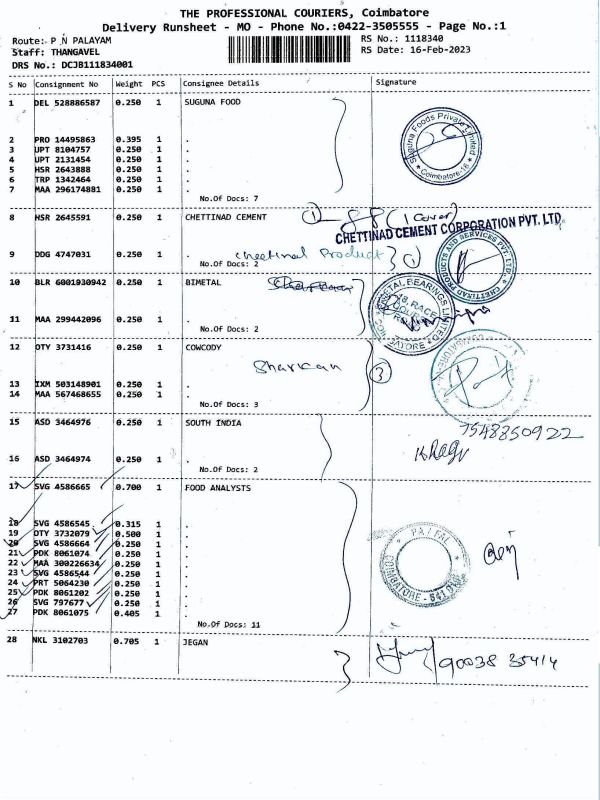 THE PROFESSIONAL COURIERS, Coimbatore
Delivery Runsheet - MO - Phone No.:0422-3505555 - Page No.:1
Route: P N PALAYAM RS No.: 1118340
Staff: THANGAVEL RS Date: 16-Feb-2023
DRS No.: DCJB111834001
S No Consignment No Weight PCS Consignee Details Signature
1 DEL 528886587 0.250 1 SUGUNA FOOD
Suguna Foods Private Limited
* Coimbatore-18 *
2 PRO 14495863 0.395 1 .
3 UPT 8104757 0.250 1 .
4 UPT 2131454 0.250 1 .
5 HSR 2643888 0.250 1 .
6 TRP 1342464 0.250 1 .
7 MAA 296174881 0.250 1 .
No.Of Docs: 7
8 HSR 2645591 0.250 1 CHETTINAD CEMENT
1 (1 Cover)
CHETTINAD CEMENT CORPORATION PVT. LTD
9 DDG 4747031 0.250 1 . Chettinad Product 1
No.Of Docs: 2
CHETTINAD PRODUCTS AND SERVICES PVT. LTD.
10 BLR 6001930942 0.250 1 BIMETAL
BIMETAL BEARINGS LIMITED
18, RACE COURSE
11 MAA 299442096 0.250 1 .
No.Of Docs: 2
12 OTY 3731416 0.250 1 COWCODY
Sharkan 3
13 IXM 503148901 0.250 1 .
14 MAA 567468655 0.250 1 .
No.Of Docs: 3
15 ASD 3464976 0.250 1 SOUTH INDIA
7548350922
16 ASD 3464974 0.250 1 .
No.Of Docs: 2
17 SVG 4586665 0.700 1 FOOD ANALYSTS
18 SVG 4586545 0.315 1 .
19 OTY 3732079 0.500 1 .
20 SVG 4586664 0.250 1 .
21 PDK 8061074 0.250 1 .
22 MAA 300226634 0.250 1 .
23 SVG 4586544 0.250 1 .
24 PRT 5064230 0.250 1 .
25 PDK 8061202 0.250 1 .
26 SVG 797677 0.250 1 .
27 PDK 8061075 0.405 1 .
No.Of Docs: 11
28 NKL 3102703 0.705 1 JEGAN
90038 35414